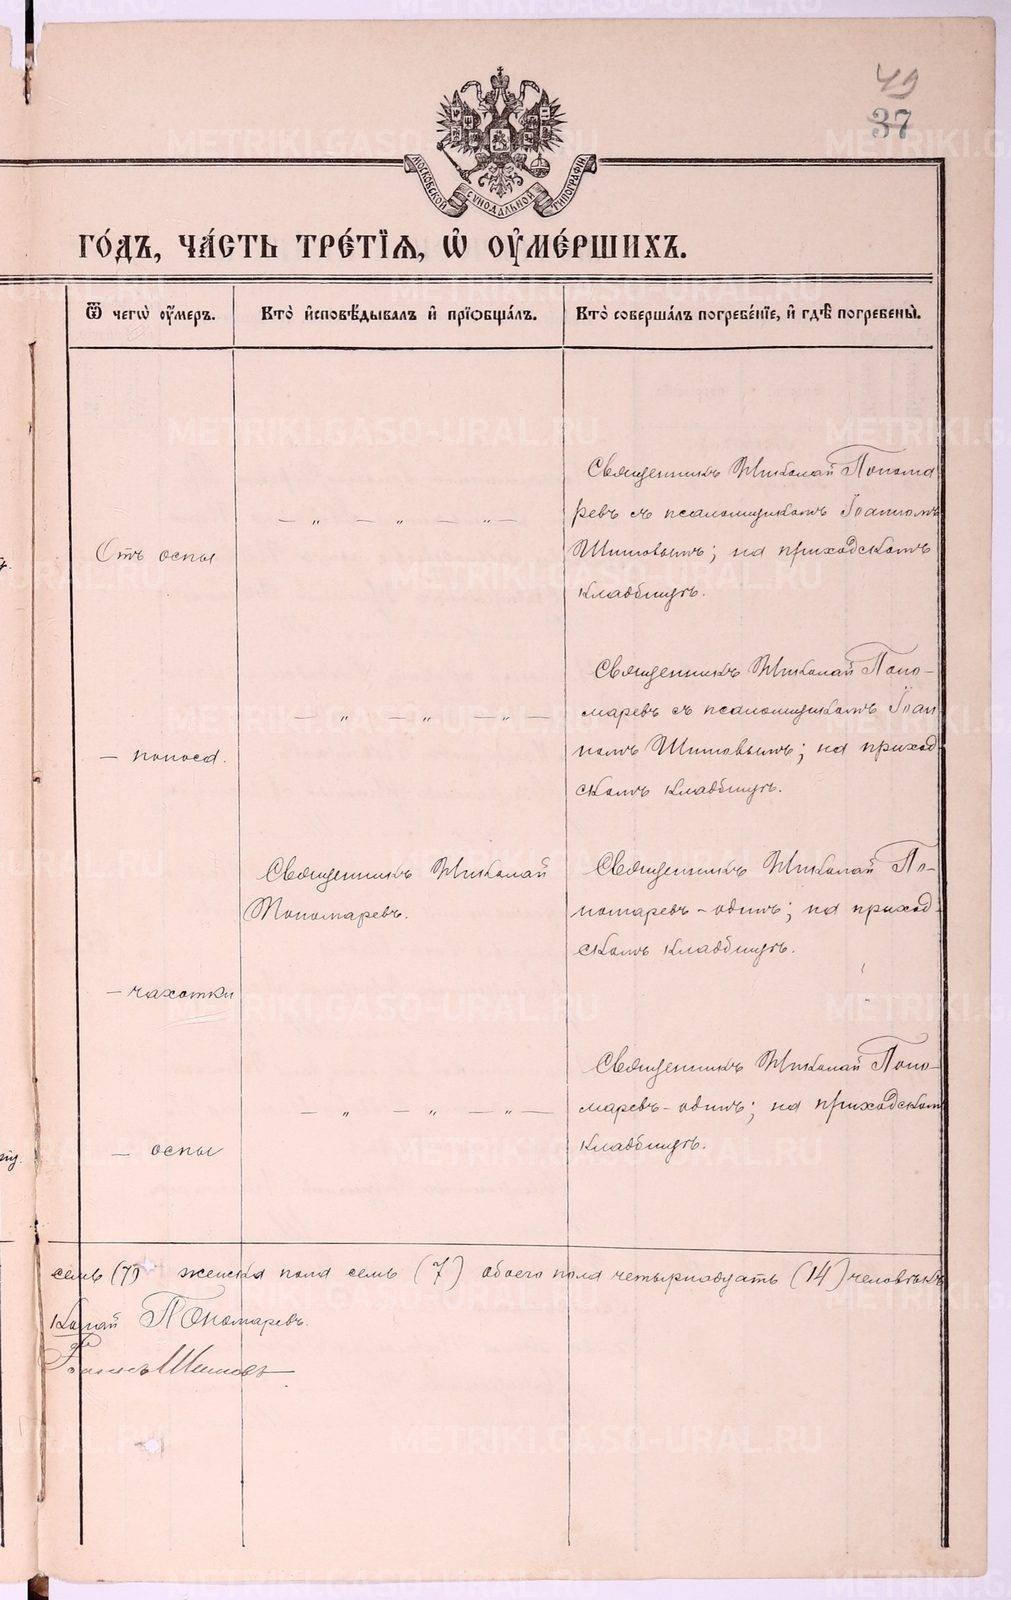 49
37
МОСКОВСКОЙ СѴНОДАЛЬНОЙ ТИПОГРАФІИ
ГО́ДЪ, ЧА́СТЬ ТРЕ́ТІѦ, Ѡ҆ ОУ҆МЕ́РШИХЪ.
Ѿ чегѡ̀ оу҆́меръ.
Кто̀ и҆сповѣ́дывалъ и҆ прїѻбща́лъ.
Кто̀ соверша́лъ погребе́нїе, и҆ гдѣ̀ погребены̀.
Священникъ Николай Понома
ревъ съ псаломщикомъ Іоанномъ
— „ — „ — „ —
Отъ оспы
Шитовымъ; на приходскомъ
кладбищѣ.
Священникъ Николай Поно-
— „ — „ — „ —
маревъ съ псаломщикомъ Іоан
— поноса.
номъ Шитовымъ; на приход-
скомъ кладбищѣ.
Священникъ Николай
Пономаревъ.
Священникъ Николай По-
номаревъ - одинъ; на приход-
скомъ кладбищѣ.
— чахотки
Священникъ Николай Поно-
— „ — „ — „ —
маревъ - одинъ; на приходскомъ
— оспы
кладбищѣ.
семь (7) женска пола семь (7) обоего пола четырнадцать (14) человѣкъ
колай Пономаревъ.
Іоаннъ Шитовъ
METRIKI.GASO-URAL.RU